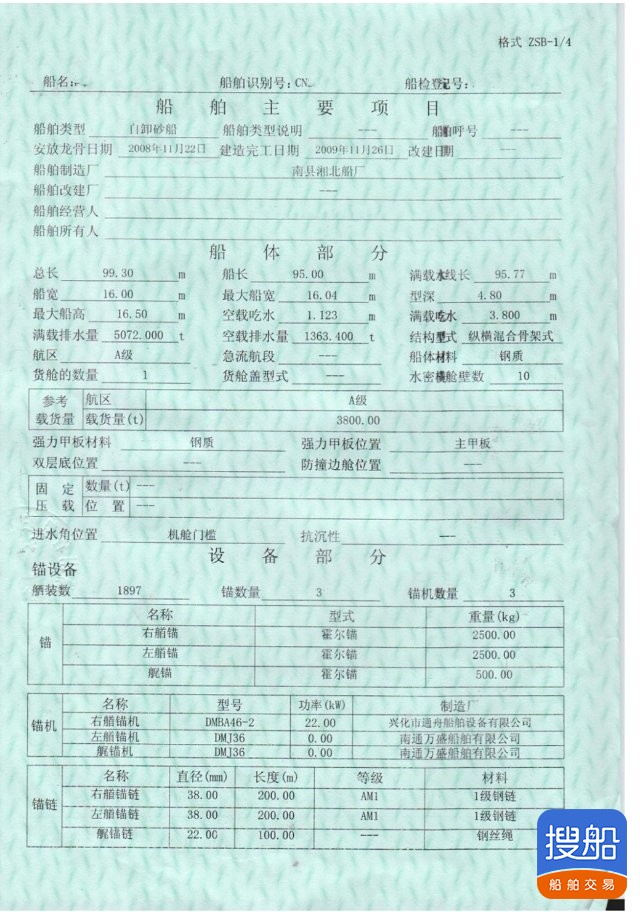 格式 ZSB-1/4
船名: 船舶识别号: CN 船检登记号:
船 舶 主 要 项 目
船舶类型 自卸砂船 船舶类型说明 --- 船舶呼号 ---
安放龙骨日期 2008年11月22日 建造完工日期 2009年11月26日 改建日期 ---
船舶制造厂 南县湘北船厂
船舶改建厂 ---
船舶经营人
船舶所有人
船 体 部 分
总长 99.30 m 船长 95.00 m 满载水线长 95.77 m
船宽 16.00 m 最大船宽 16.04 m 型深 4.80 m
最大船高 16.50 m 空载吃水 1.123 m 满载吃水 3.800 m
满载排水量 5072.000 t 空载排水量 1363.400 t 结构型式 纵横混合骨架式
航区 A级 急流航段 --- 船体材料 钢质
货舱的数量 1 货舱盖型式 --- 水密横舱壁数 10
参考 航区 A级
载货量 载货量(t) 3800.00
强力甲板材料 钢质 强力甲板位置 主甲板
双层底位置 --- 防撞边舱位置 ---
固 定 数量(t) ---
压 载 位 置 ---
进水角位置 机舱门槛 抗沉性 ---
设 备 部 分
锚设备
舾装数 1897 锚数量 3 锚机数量 3
名称 型式 重量(kg)
右艏锚 霍尔锚 2500.00
锚 左艏锚 霍尔锚 2500.00
艉锚 霍尔锚 500.00
名称 型号 功率(kW) 制造厂
锚机 右艏锚机 DMBA46-2 22.00 兴化市通舟船舶设备有限公司
左艏锚机 DMJ36 0.00 南通万盛船舶有限公司
艉锚机 DMJ36 0.00 南通万盛船舶有限公司
名称 直径(mm) 长度(m) 等级 材料
锚链 右艏锚链 38.00 200.00 AM1 1级钢链
左艏锚链 38.00 200.00 AM1 1级钢链
艉锚链 22.00 100.00 --- 钢丝绳
搜船
船舶交易